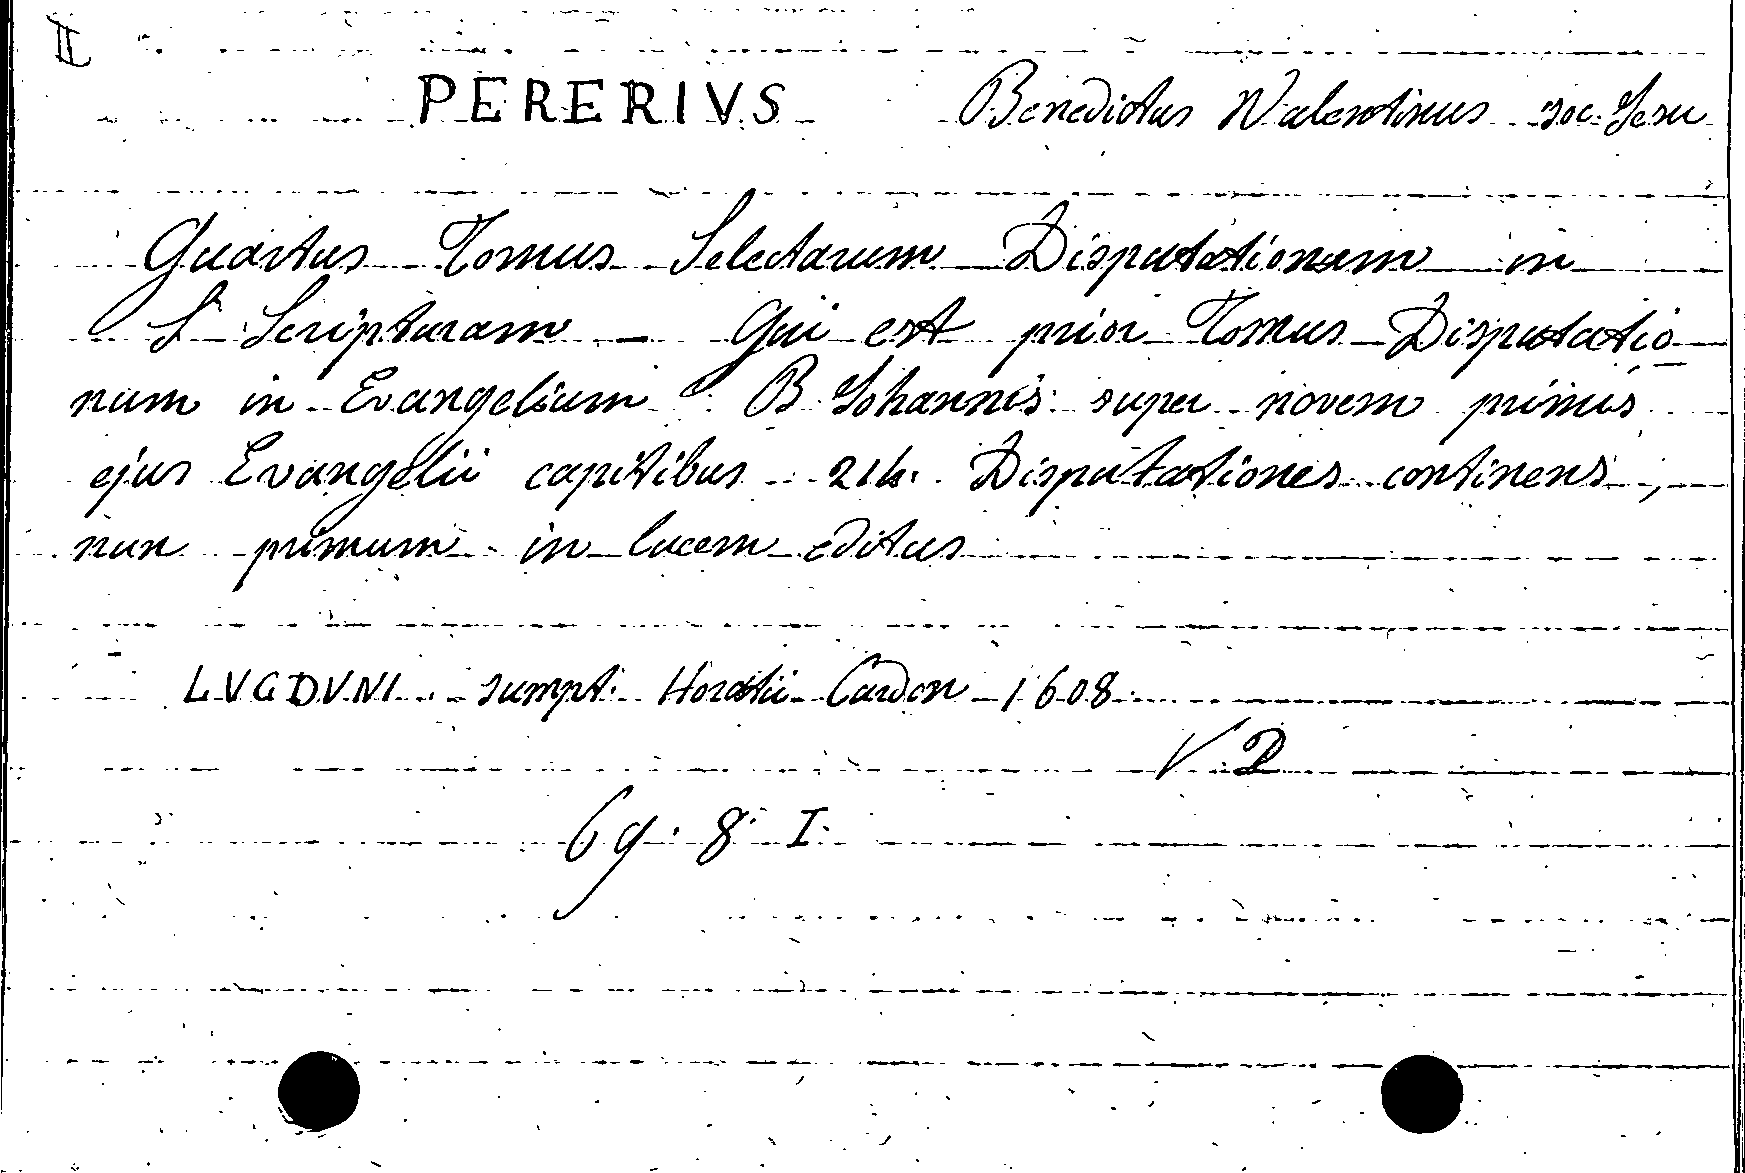 II
PERERIVS Benedictus Valentinus soc. Jesu
Quartus Tomus Selectarum Disputationum in
S. Scripturam – Qui est prior Tomus Disputatio
num in Evangelium B Johannis super novem primis
ejus Evangelii capitibus 214. Disputationes continens,
nun primum in lucem editus
LVGDVNI. sumpt. Horatii Cardon 1608.
V D
69. 8. I.